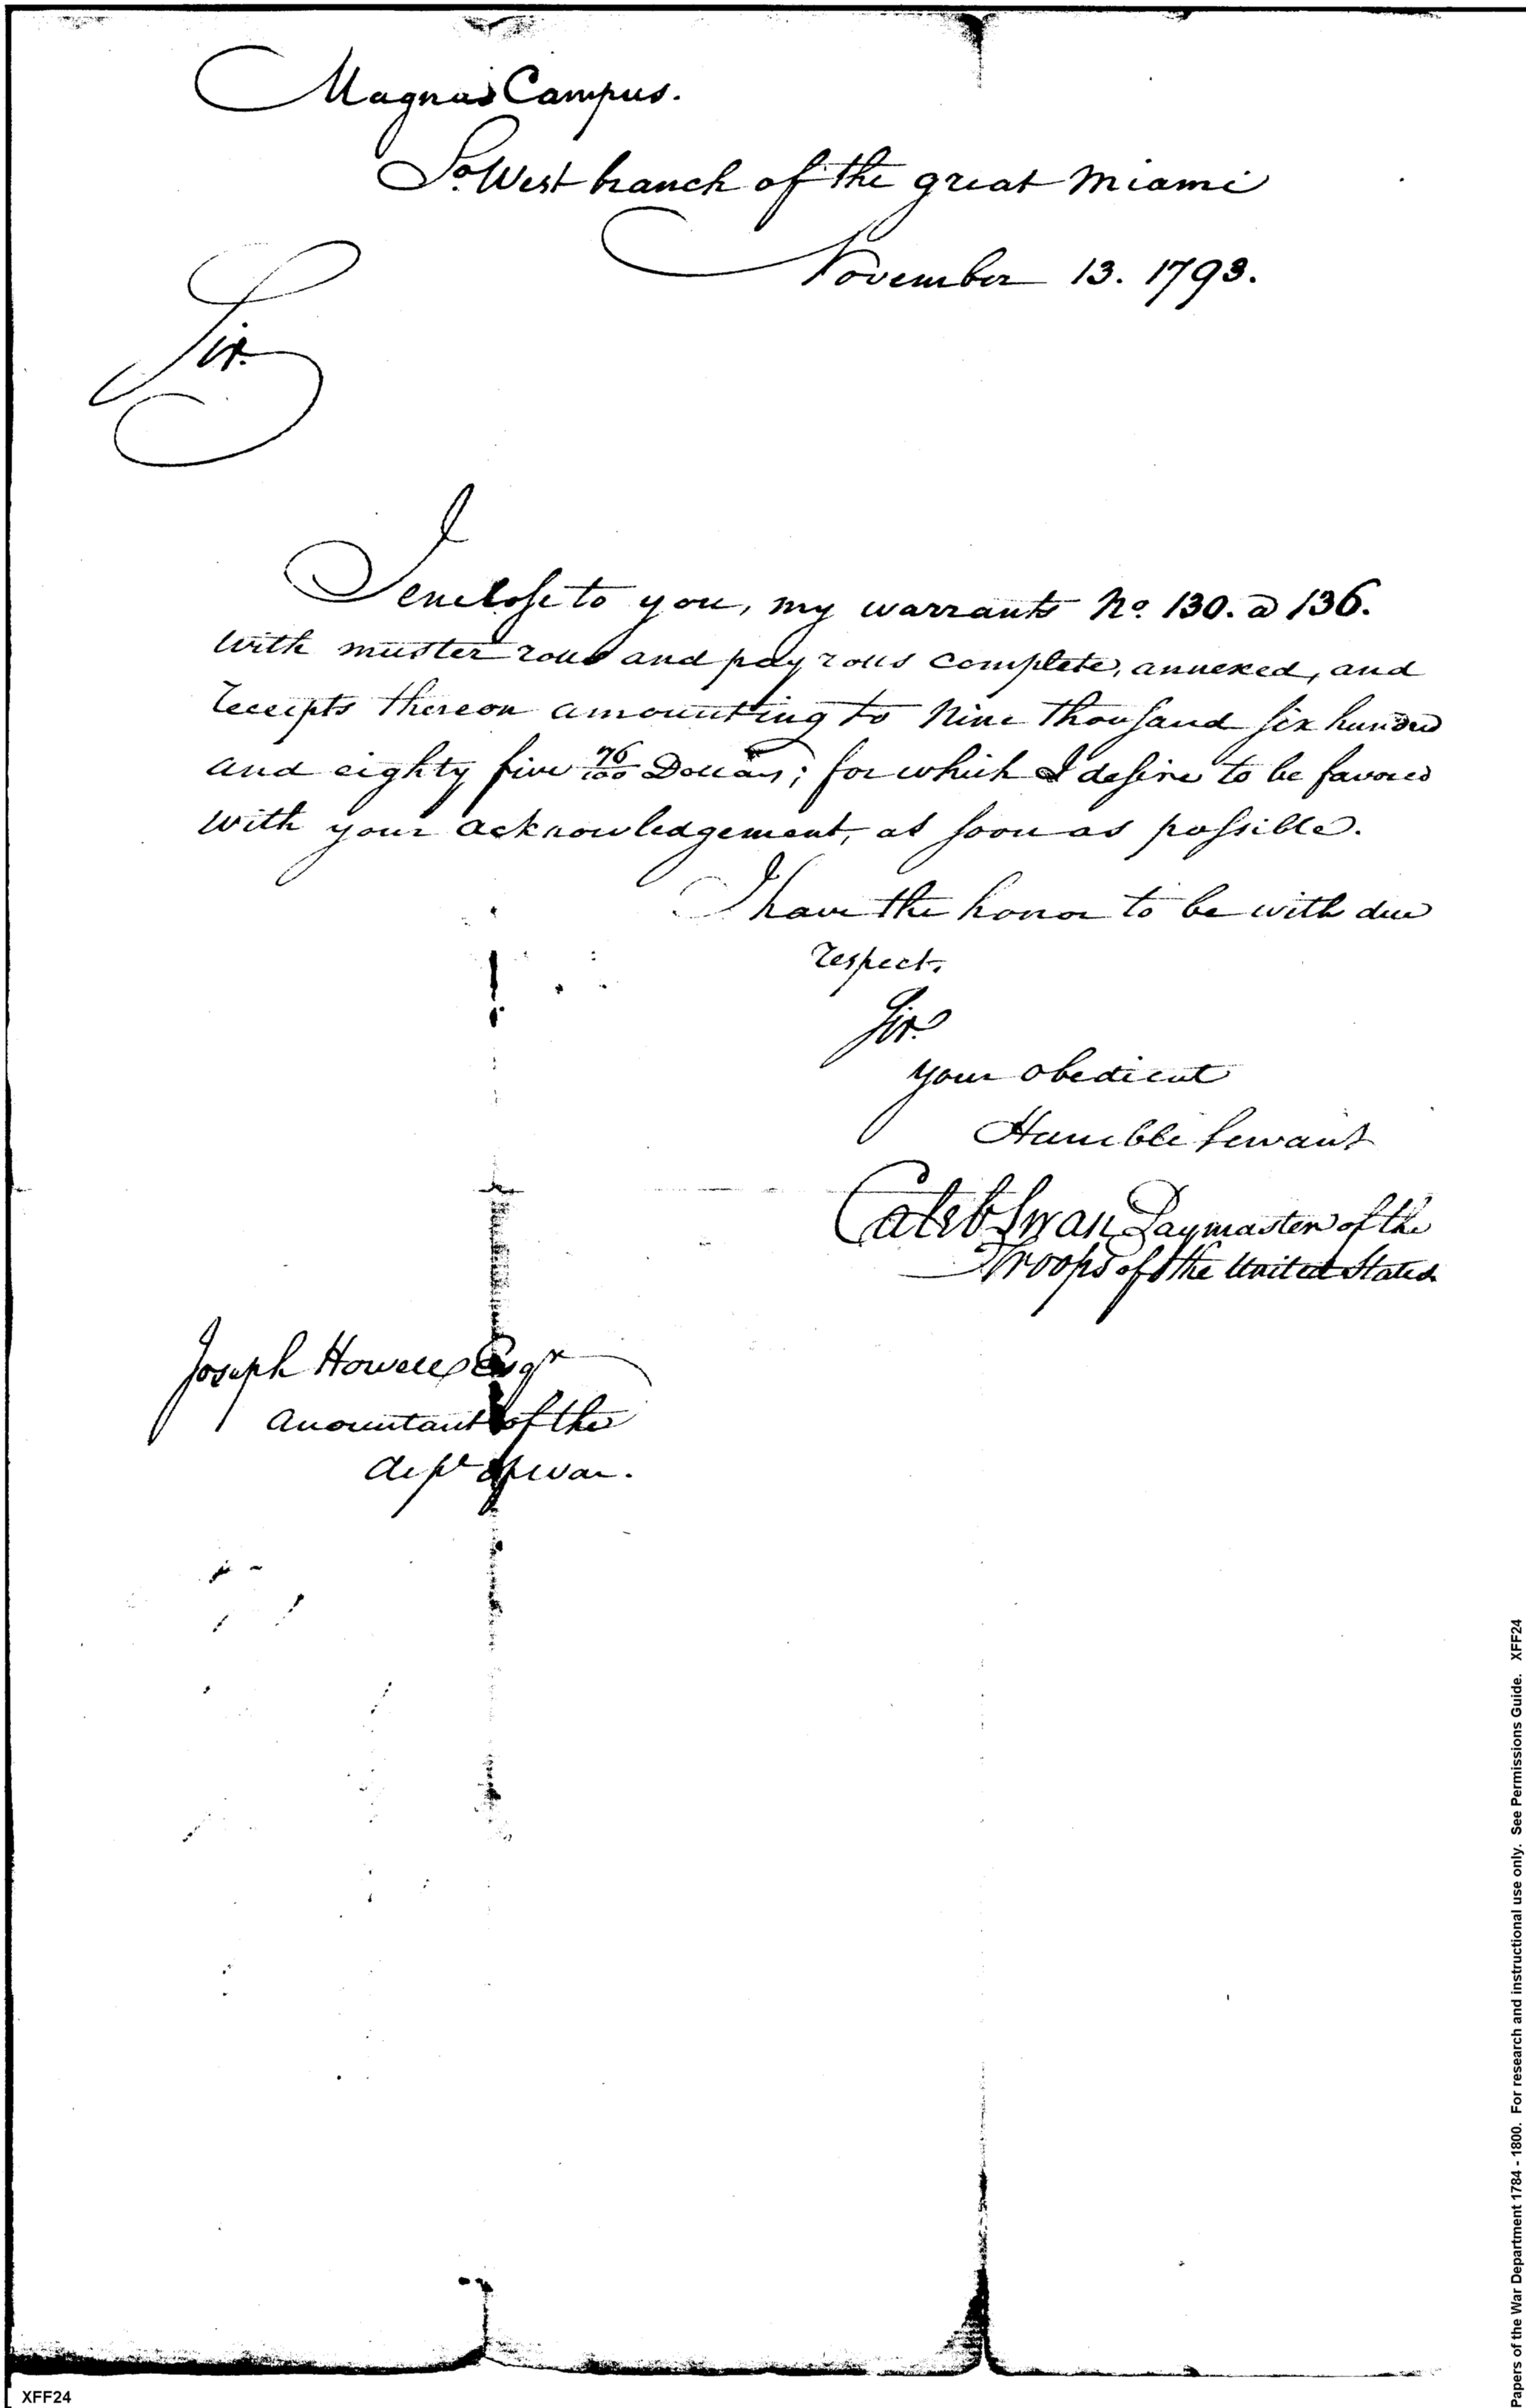 Magnus Campus.
So. West branch of the great Miami
November 13. 1793.
Sir.
I enclose to you, my warrants No. 130. a 136.
with muster rolls and pay rolls complete, annexed, and
receipts thereon amounting to Nine thousand six hundred
and eighty five 76/100 Dollars; for which I desire to be favored
with your acknowledgement, as soon as possible.
I have the honor to be with due
respect,
Sir.
your obedient
Humble Servant
Caleb Swan Paymaster of the
Troops of the United States
Joseph Howell Esqr
Accountant of the
dept of war.
Papers of the War Department 1784 - 1800. For research and instructional use only. See Permissions Guide. XFF24
XFF24